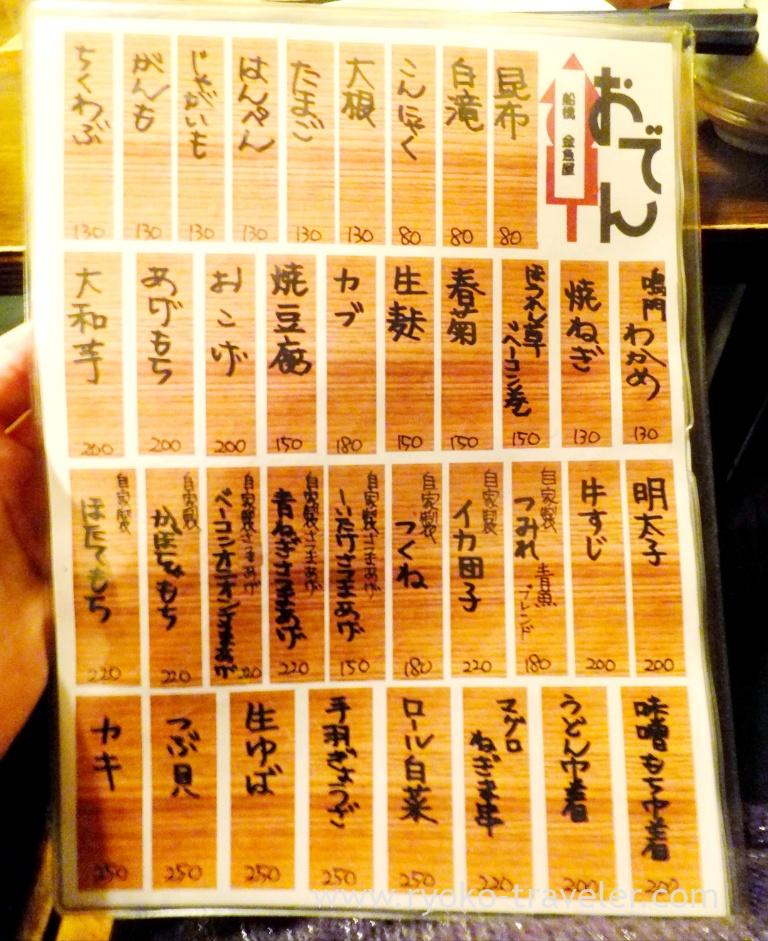 おでん
船橋 金魚屋
昆布 80
白滝 80
こんにゃく 80
大根 130
たまご 130
はんぺん 130
じゃがいも 130
がんも 130
ちくわぶ 130
鳴門わかめ 130
焼ねぎ 130
ほうれん草ベーコン巻 150
春菊 150
生麩 150
カブ 180
焼豆腐 150
おこげ 200
あげもち 200
大和芋 200
明太子 200
牛すじ 200
自家製 つみれ 青魚ブレンド 180
自家製 イカ団子 220
自家製 つくね 180
自家製さつまあげ しいたけさつまあげ 150
自家製さつまあげ 青ねぎさつまあげ 220
自家製さつまあげ ベーコンオニオンさつまあげ 220
自家製 かぼちゃもち 220
自家製 ほたてもち 220
味噌もち巾着 200
うどん巾着 200
マグロねぎま串 220
ロール白菜 250
手羽ぎょうざ 250
生ゆば 250
つぶ貝 250
カキ 250
www.ryoko-traveler.com